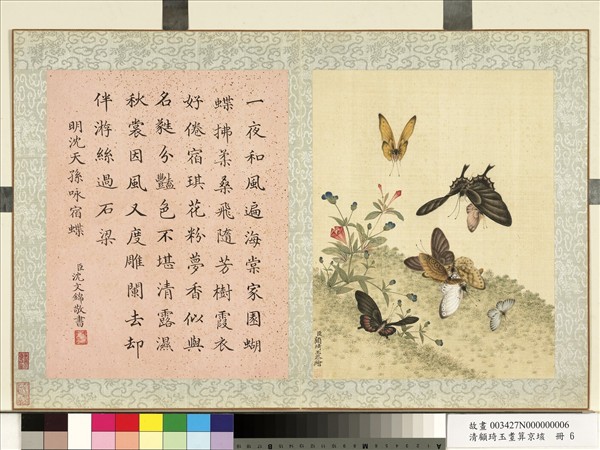 一夜和風遍海棠家園蝴
蝶拂柔桑飛隨芳樹霞衣
好倦宿琪花粉夢香似與
名蕤分豔色不堪清露濕
秋裳因風又度雕闌去却
伴游絲過石梁
明沈天孫咏宿蝶
臣沈文錦敬書
故畫 003427N000000006
清顧琦玉畫算京垓 冊 6